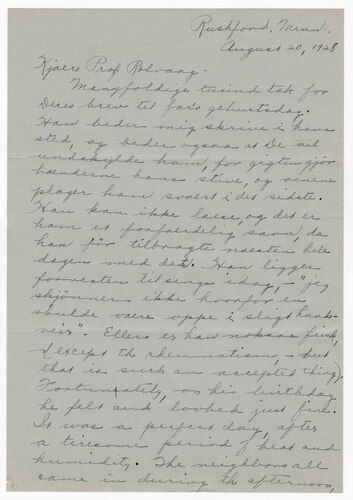 Rushford, Minn.,
August 20, 1928
Kjære Prof. Rölvaag -
Mangfoldige tusind tak for
Deres brev til fars geburtsdag.
Han beder mig skrive i hans
sted, og beder ogsaa at De vil
undskylde ham, for gigten gjör
hænderne hans stive, og öinene
plager ham svært i det sidste.
Han kan ikke læse, og det er
ham et forfærdelig savn, da
han för tilbragte næsten hele
dagen med det. Han ligger
forresten tilsengs idag, - "jeg
skjönner ikke hvorfor en
skulde være oppe i sligt hunde-
veir". Ellers er han noksaa frisk,
(except the rheumatism, - but
that is such an accepted thing).
Fortunately, on his birthday
he felt and looked just fine.
It was a perfect day, after
a tiresome period of heat and
humidity. The neighbors all
came in during the afternoon,